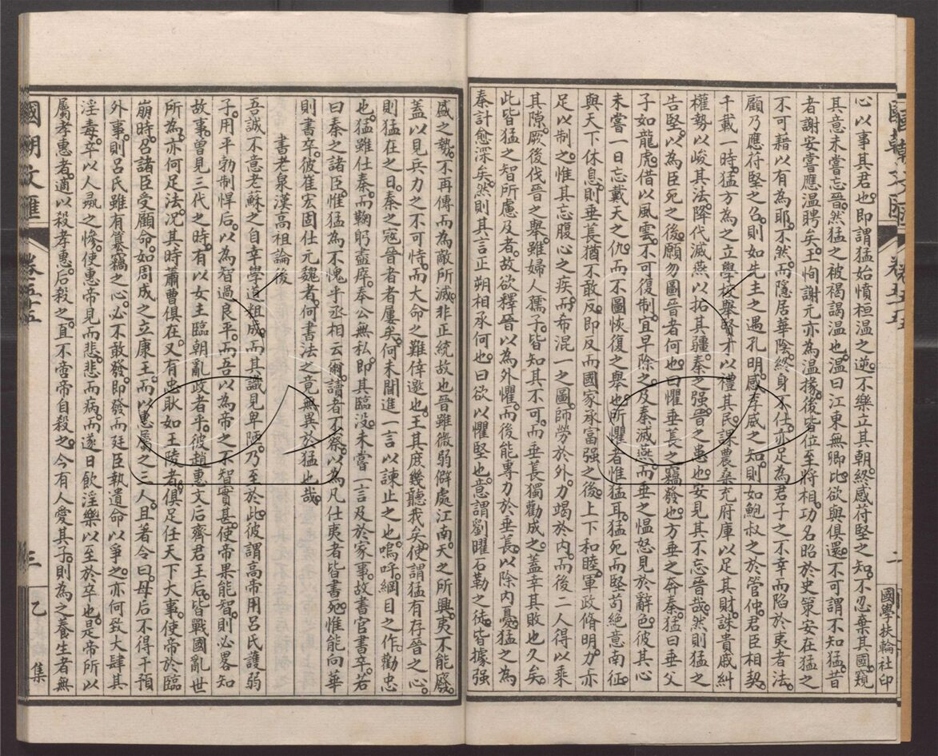 國朝文匯
卷五十五
二
國學扶輪社印
心以事其君也。即謂猛始憤桓溫之逆。不樂立其朝。終感苻堅之知。不忍棄其國。觀
其意未嘗忘晉。然猛之被褐謁溫也。溫曰江東無卿比。欲與俱還。不可謂不知猛。昔
者謝安嘗應溫聘矣。王恂謝元亦為溫掾。後客位至將相。功名昭於史策。安在猛之
不可藉以有為耶。不然。而隱居華陰。終身不仕。亦足為君子之不幸而陷於夷者法。
顧乃應苻堅之召。則如先主之遇孔明。感李威之知。則如鮑叔之於管仲。君臣相契。
千載一時。猛方為之立學校。舉賢才。以禮其民。課農桑。充府庫。以足其財。誅貴戚。糾
權勢。以峻其法。降代滅燕。以拓其疆。秦之強。晉之患也。安見其不忘晉哉。然則猛之
告堅。以為臣死之後。願勿圖晉者何也。曰懼垂萇之竊發也。方垂之奔秦。猛曰垂父
子如龍虎。借以風雲。不可復制。宜早除之。及秦滅燕。而垂之慍怒見於辭色。彼其心
未嘗一日忘戴天之仇。而不圖恢復之舉也。所懼者惟猛耳。猛死而堅苟絕意南征。
與天下休息。則垂萇猶不敢反。即反。而國家承富強之後。上下和睦。軍政脩明。力亦
足以制之。惟其忘腹心之疾。而希混一之圖。師勞於外。力竭於內。而後二人得以乘
其隙。厥後伐晉之舉。雖婦人孺子皆知其不可。而垂萇獨勸成之。蓋幸其敗也久矣。
此皆猛之智所慮及者。故欲釋晉以為外懼。而後能專力於垂萇。以除內憂。猛之為
秦計愈深矣。然則其言正朔相承何也。曰欲以懼堅也。意謂劉曜石勒之徒。皆據強
盛之勢。不再傳而為敵所滅。非正統故也。晉雖微弱僻處江南。天之所興。夷不能廢。
蓋以見兵力之不可恃。而大命之難倖邀也。王其庶幾聽我矣。使謂猛有存晉之心。
則猛在之日。秦之寇晉者屢矣。何未聞進一言以諫止之也。嗚呼。綱目之作。勸忠
也。猛雖仕秦。而鞠躬盡瘁。奉公無私。即其臨沒。未嘗一言及於家事。故書官書卒。若
曰秦之諸臣惟猛為不愧乎丞相云爾。讀者不察。以為凡仕夷者皆書死。惟能向華
則書卒。彼崔宏固仕元魏者。何書法之竟無異於猛也哉。
書老泉漢高祖論後
吾誠不意老蘇之自幸學道粗成。而其識見卑陋。乃至於此。彼謂高帝用呂氏護弱
子。用平勃制悍后。以為智過良平。而吾以為帝之不智實甚。使帝果能智。則必畧知
故事。曾見三代之時。有以女主臨朝亂政者乎。彼趙惠文后齊君王后。皆戰國亂世
所為。亦何足法。況其時蕭曹俱在。又有忠耿如王陵者。俱足任天下大事。使帝於臨
崩時。召諸臣受顧命。如周成之立康王。而以惠屬之三人。且著令曰。母后不得干預
外事。則呂氏雖有篡竊之心。必不敢發。即發而廷臣執遺命以爭之。亦何致大肆其
淫毒。卒以人彘之慘。使惠帝見而悲。悲而病。而遂日飲淫樂以至於卒也。是帝所以
屬孝惠者。適以殺孝惠。后殺之。直不啻帝自殺之。今有人愛其子。則為之養生者無
國朝文匯
卷五十五
三
乙集